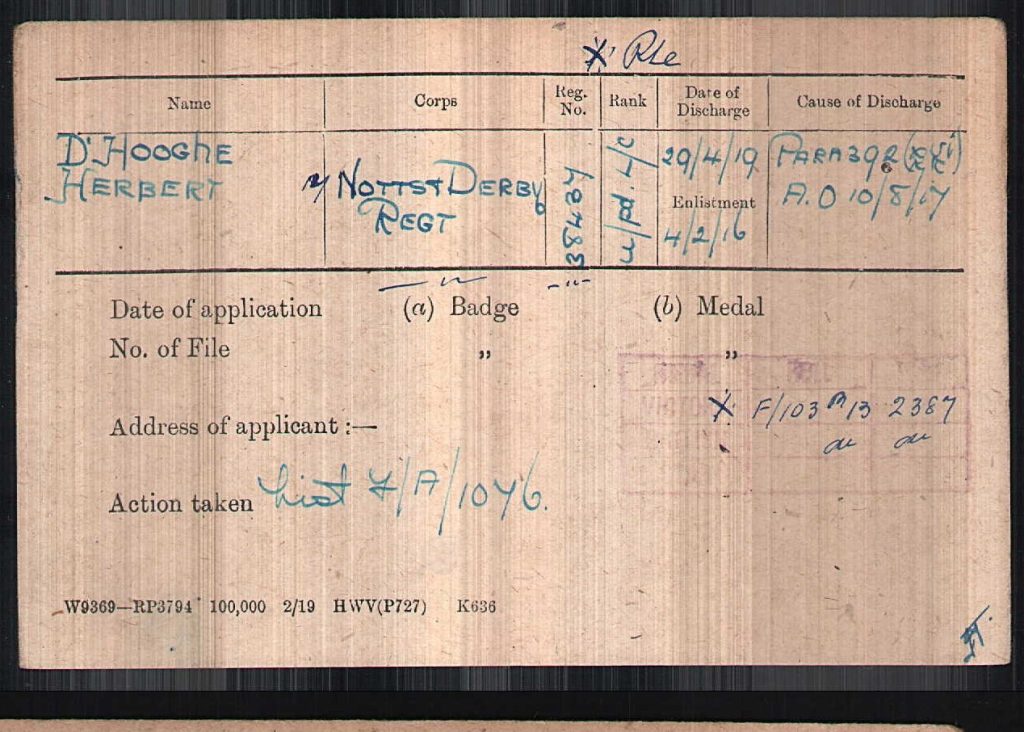 X Pte
Name Corps Reg. No. Rank Date of Discharge Cause of Discharge
D'HOOGHE NOTTS & DERBY 29/4/19 PARA 392 (xvi)
HERBERT REGT u/pd. L/C Enlistment A.O 10/8/17
4/2/16
Date of application (a) Badge (b) Medal
No. of File „ „
VICTORY X F/103 B13 2387
Address of applicant :— do do
Action taken List F/A/1046.
W9369—RP3794 100,000 2/19 HWV(P727) K636